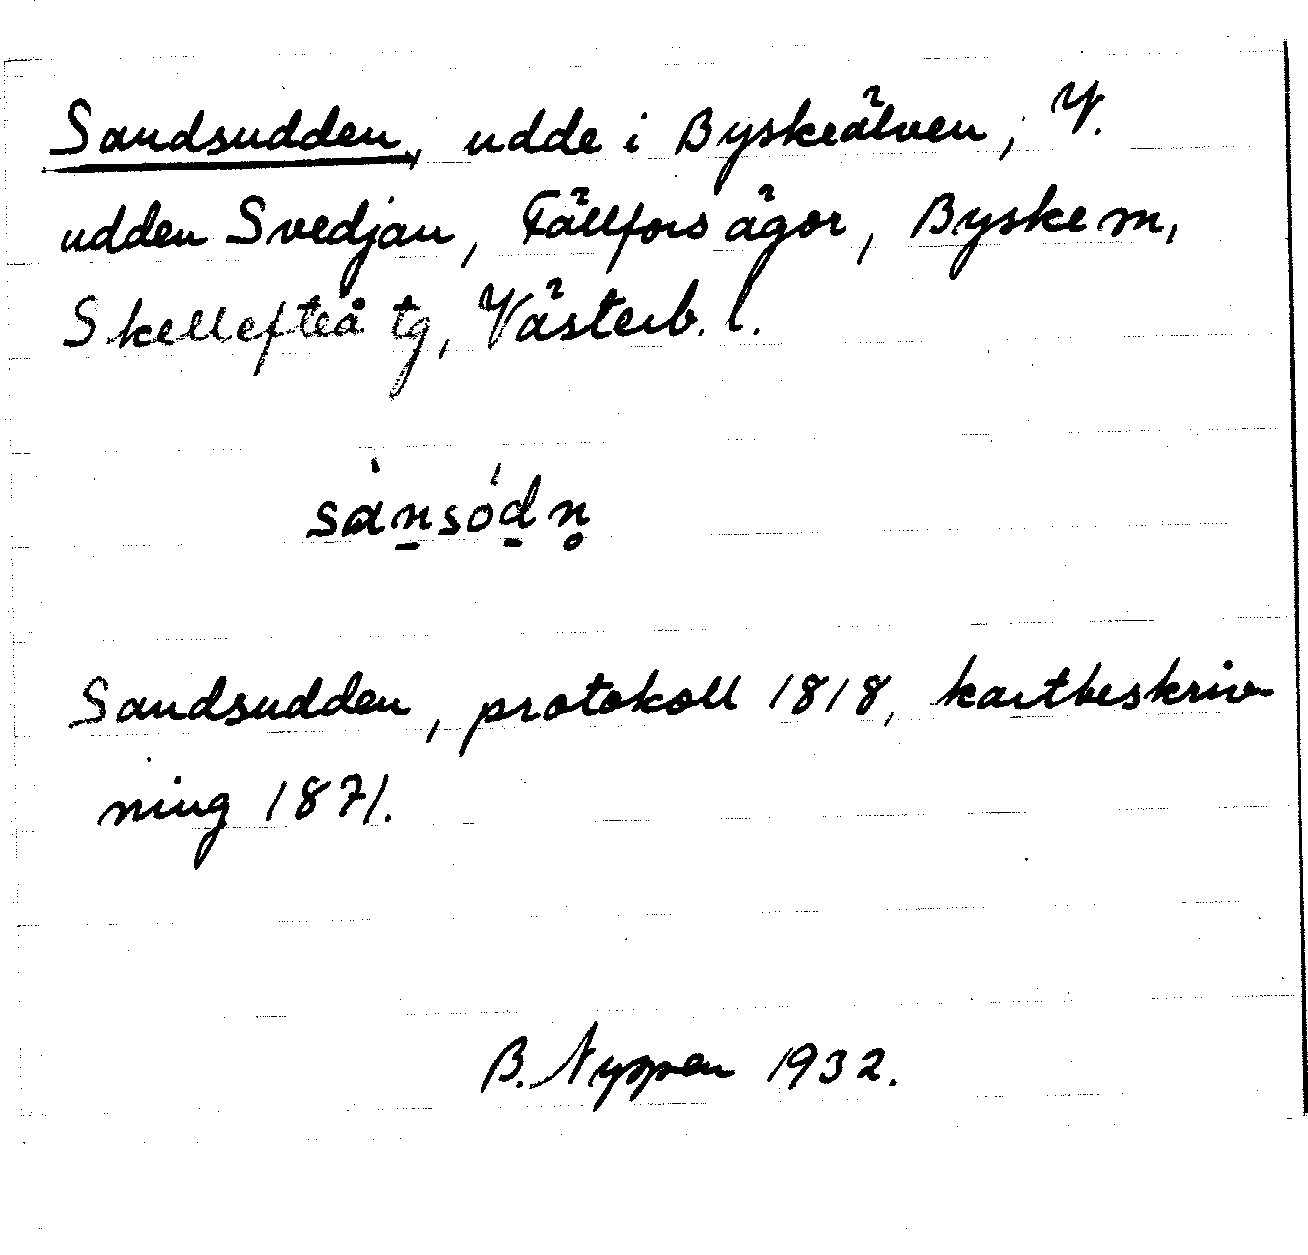 Sandsudden, udde i Byskeälven, V.
udden Svedjan, Fällfors ägor, Byske sn,
Skellefteå tg, Västerb. l.
sànsódn̥
Sandsudden, protokoll 1818, kartbeskriv-
ning 1871.
B. Nyppen 1932.